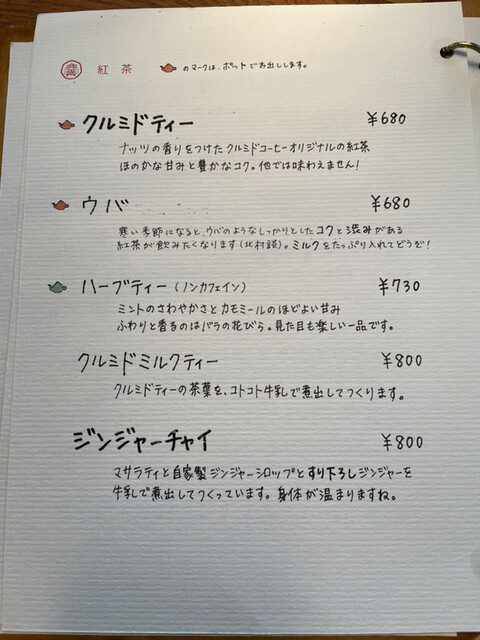 紅茶 のマークは、ポットでお出しします。
クルミドティー ¥680
ナッツの香りをつけたクルミドコーヒーオリジナルの紅茶
ほのかな甘みと豊かなコク。他では味わえません!
ウバ ¥680
寒い季節になると、ウバのようなしっかりとしたコクと渋みがある
紅茶が飲みたくなります(北村談)。ミルクをたっぷり入れてどうぞ!
ハーブティー(ノンカフェイン) ¥730
ミントのさわやかさとカモミールのほどよい甘み
ふわりと香るのはバラの花びら。見た目も楽しい一品です。
クルミドミルクティー ¥800
クルミドティーの茶葉を、コトコト牛乳で煮出してつくります。
ジンジャーチャイ ¥800
マサラティと自家製ジンジャーシロップとすり下ろしジンジャーを
牛乳で煮出してつくっています。身体が温まりますね。